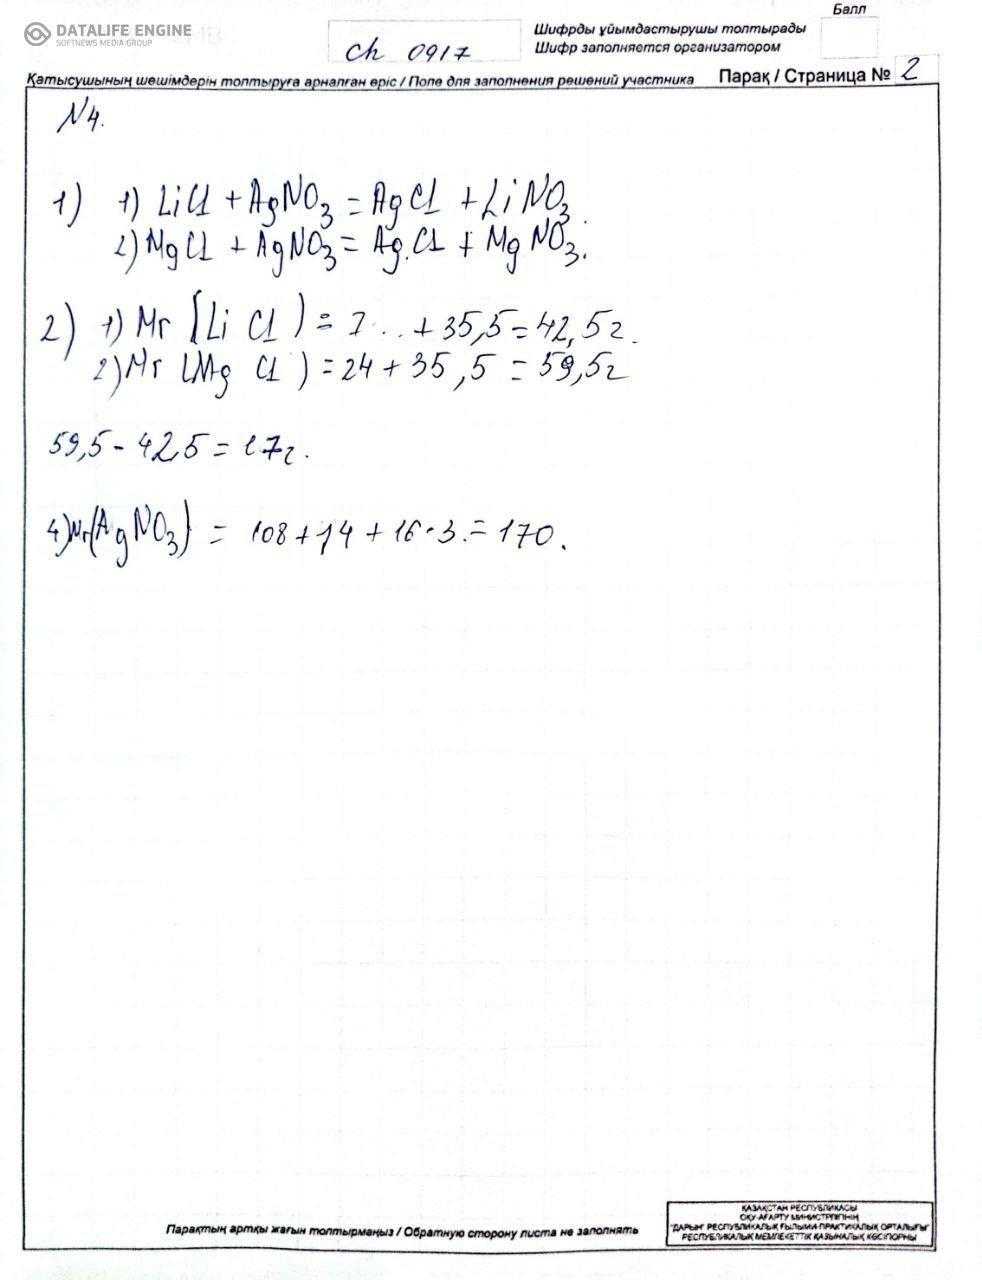 DATALIFE ENGINE
SOFTNEWS MEDIA GROUP
Балл
Шифрды ұйымдастырушы толтырады
Шифр заполняется организатором
ch 0917
Қатысушының шешімдерін толтыруға арналған өріс / Поле для заполнения решений участника
Парақ / Страница № 2
N4.
1) 1) LiCl + AgNO3 = AgCl + LiNO3.
2) MgCl + AgNO3 = AgCl + MgNO3.
2) 1) Mr (LiCl) = 7 .. + 35,5 = 42,5г.
2) Mr (MgCl) = 24 + 35,5 = 59,5г
59,5 - 42,5 = 17г.
4) Mr(AgNO3) = 108 + 14 + 16·3. = 170.
Парақтың артқы жағын толтырмаңыз / Обратную сторону листа не заполнять
ҚАЗАҚСТАН РЕСПУБЛИКАСЫ
ОҚУ-АҒАРТУ МИНИСТРЛІГІНІҢ
"ДАРЫН" РЕСПУБЛИКАЛЫҚ ҒЫЛЫМИ-ПРАКТИКАЛЫҚ ОРТАЛЫҒЫ"
РЕСПУБЛИКАЛЫҚ МЕМЛЕКЕТТІК ҚАЗЫНАЛЫҚ КӘСІПОРНЫ